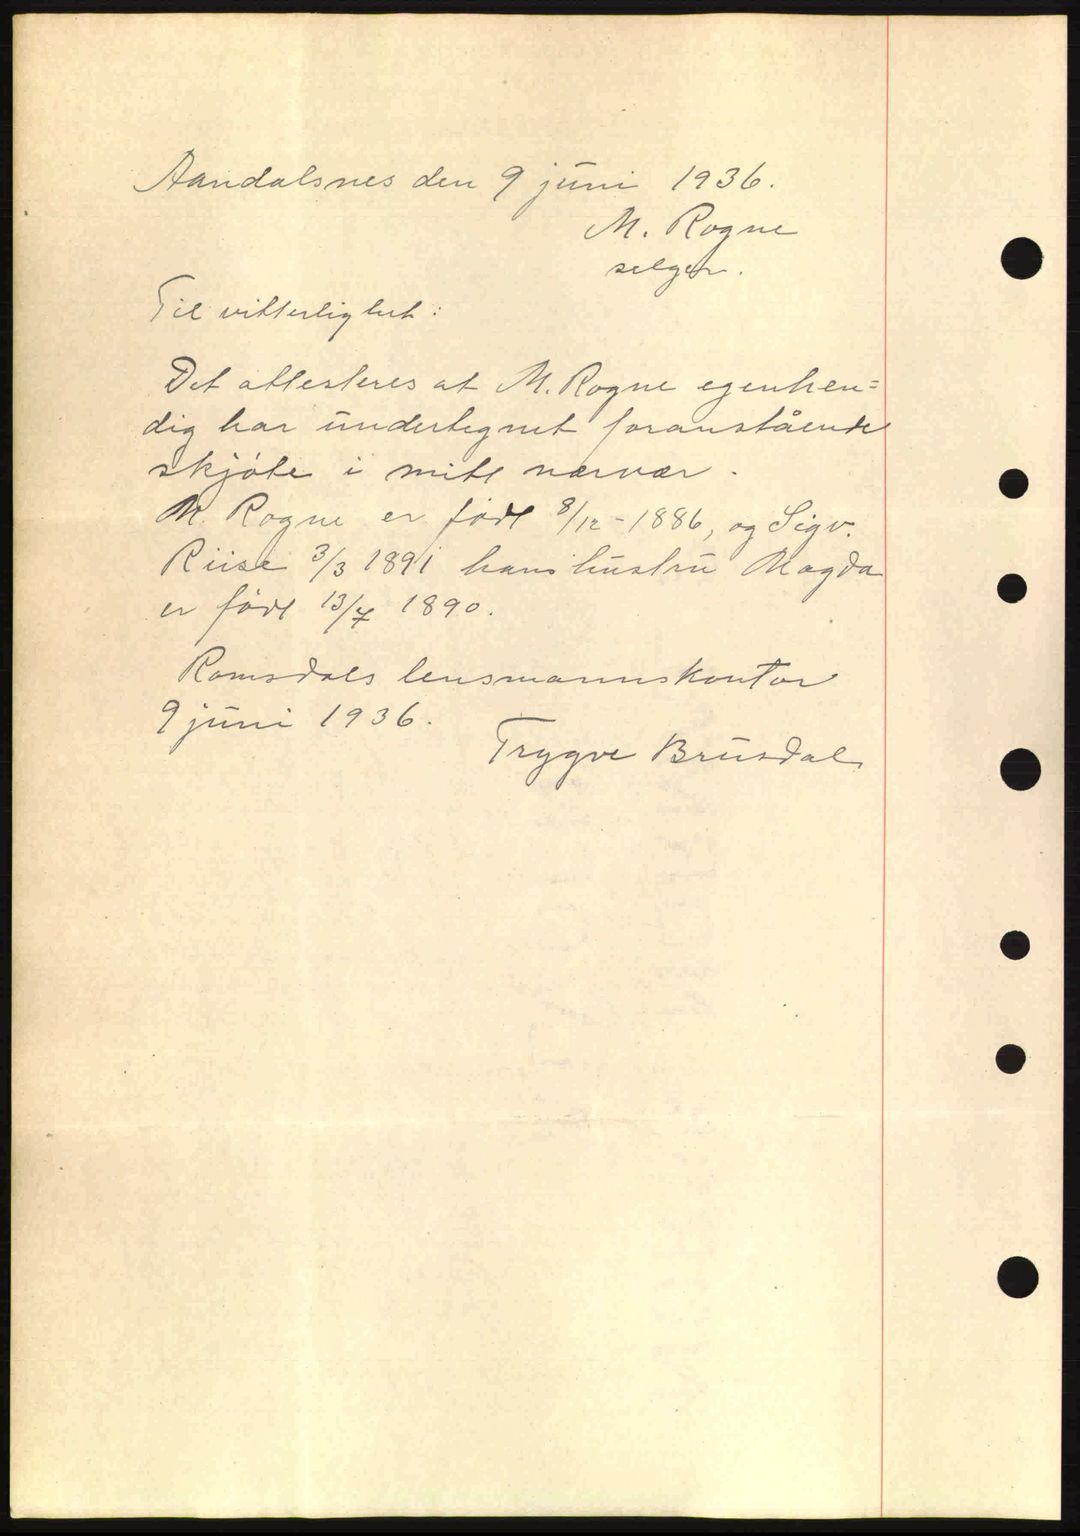 Aandalsnes den 9 juni 1936.
M. Rogne
selger.
Til vitterlighet:
Det attesteres at M. Rogne egenhen=
dig har undertegnet foranstående
skjøte i mitt nærvær.
M. Rogne er født 8/12-1886, og Sigv.
Riise 3/3 1891 hans hustru Magda
er født 13/7 1890.
Romsdals lensmannskontor
9 juni 1936.
Trygve Brusdal